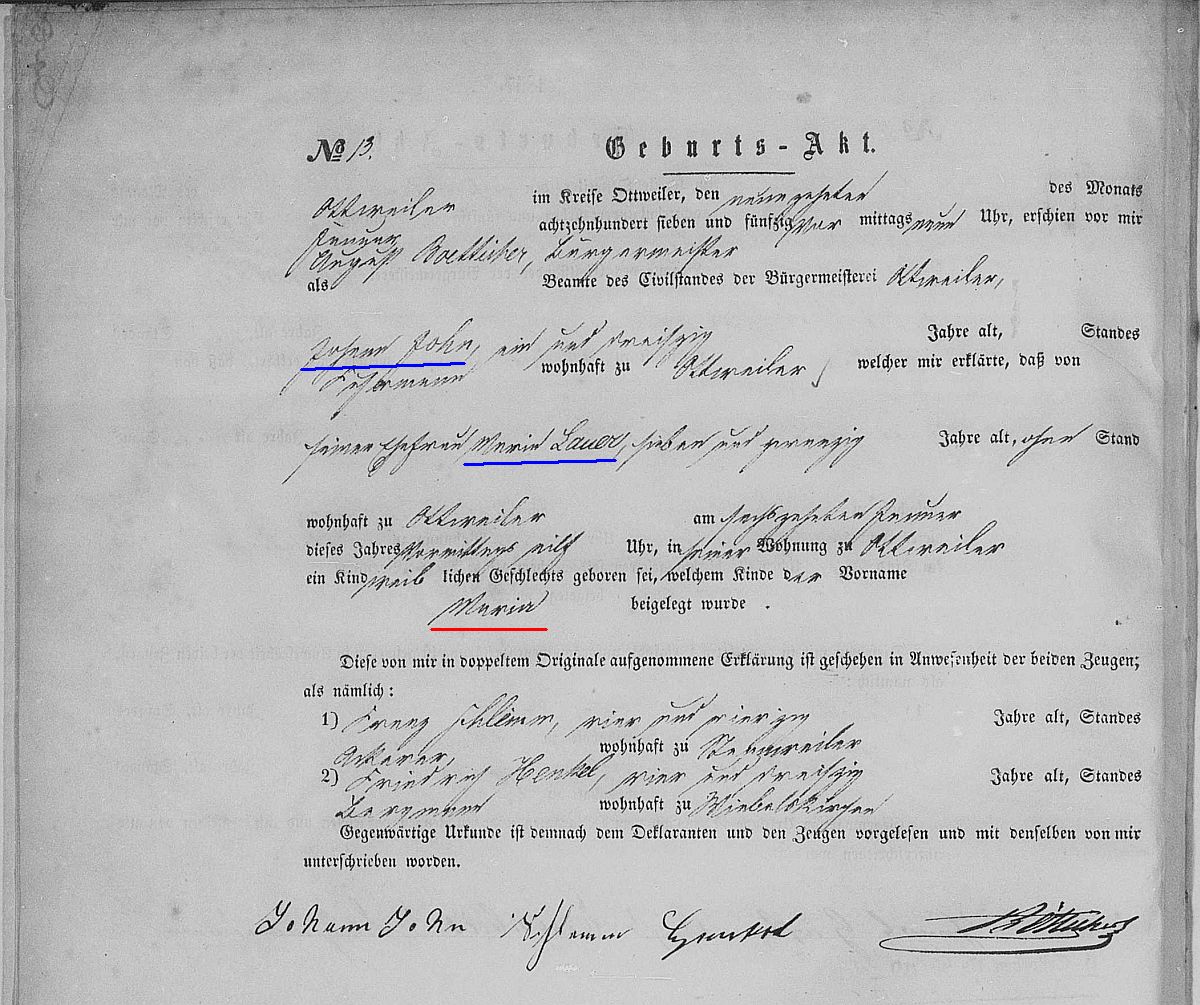 № 13. Geburts-Akt.
Ottweiler im Kreise Ottweiler, den neunzehnten des Monats
Januar achtzehnhundert sieben und fünfzig Vor mittags neun Uhr, erschien vor mir
August Boetticher, Bürgermeister
als Beamte des Civilstandes der Bürgermeisterei Ottweiler,
Johann John, ein und dreißig Jahre alt, Standes
Fuhrmann wohnhaft zu Ottweiler welcher mir erklärte, daß von
seiner Ehefrau Maria Lauer, sieben und zwanzig Jahre alt, ohne Stand
wohnhaft zu Ottweiler am sechszehnten Januar
dieses Jahres Vormittags eilf Uhr, in seiner Wohnung zu Ottweiler
ein Kind weib lichen Geschlechts geboren sei, welchem Kinde der Vorname
Maria beigelegt wurde .
Diese von mir in doppeltem Originale aufgenommene Erklärung ist geschehen in Anwesenheit der beiden Zeugen;
als nämlich :
1) Franz Schlemm, vier und vierzig Jahre alt, Standes
Ackerer, wohnhaft zu Stennweiler
2) Friedrich Henkel, vier und dreißig Jahre alt, Standes
Bergmann wohnhaft zu Wiebelskirchen
Gegenwärtige Urkunde ist demnach dem Deklaranten und den Zeugen vorgelesen und mit denselben von mir
unterschrieben worden.
Johann John Schlemm Henkel Bötticher